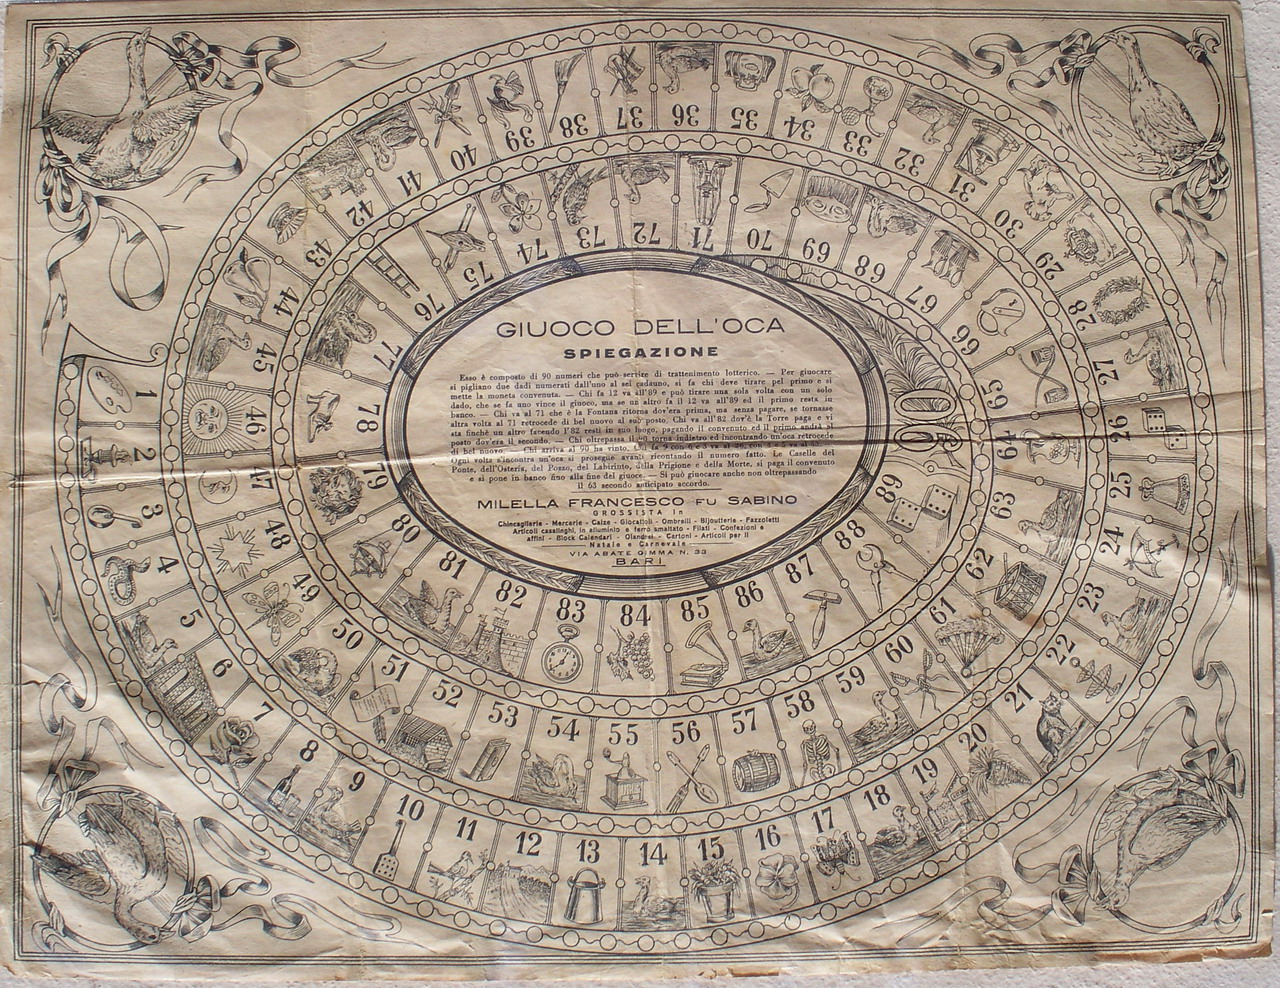 GIUOCO DELL'OCA
SPIEGAZIONE
Esso è composto di 90 numeri che può servire di trattenimento lotterico. — Per giuocare
si pigliano due dadi numerati dall'uno al sei cadauno, si fa chi deve tirare pel primo e si
mette la moneta convenuta. — Chi fa 12 va all'89 e può tirare una sola volta con un solo
dado, che se fa uno vince il giuoco, ma se un altro fa il 12 va all'89 ed il primo resta in
banco. — Chi va al 71 che è la Fontana ritorna dov'era prima, ma senza pagare, se tornasse
altra volta al 71 retrocede di bel nuovo al suo posto. Chi va all'82 dov'è la Torre paga e vi
sta finchè un altro facendo l'82 resti in suo luogo, pagando il convenuto ed il primo andrà al
posto dov'era il secondo. — Chi oltrepassa il 90 torna indietro ed incontrando un'oca retrocede
di bel nuovo. — Chi arriva al 90 ha vinto.
Ogni volta s'incontra un'oca si prosegue avanti rifacendo il numero fatto. Le Caselle del
Ponte, dell'Osteria, del Pozzo, del Labirinto, della Prigione e della Morte, si paga il convenuto
e si pone in banco fino alla fine del giuoco. Si può giuocare anche non oltrepassando
il 63 secondo anticipato accordo.
MILELLA FRANCESCO FU SABINO
GROSSISTA in
Chincaglierie - Mercerie - Calze - Giocattoli - Ombrelli - Bijoutterie - Fazzoletti
Articoli casalinghi, in alluminio e ferro smaltato - Filati - Confezioni e
affini - Block Calendari - Olandesi - Cartoni - Articoli per il
Natale e Carnevale
VIA ABATE GIMMA N. 33
BARI
1
2
3
4
5
6
7
8
9
10
11
12
13
14
15
16
17
18
19
20
21
22
23
24
25
26
27
28
29
30
31
32
33
34
35
36
37
38
39
40
41
42
43
44
45
46
47
48
49
50
51
52
53
54
55
56
57
58
59
60
61
62
63
64
65
66
67
68
69
70
71
72
73
74
75
76
77
78
79
80
81
82
83
84
85
86
87
88
89
90